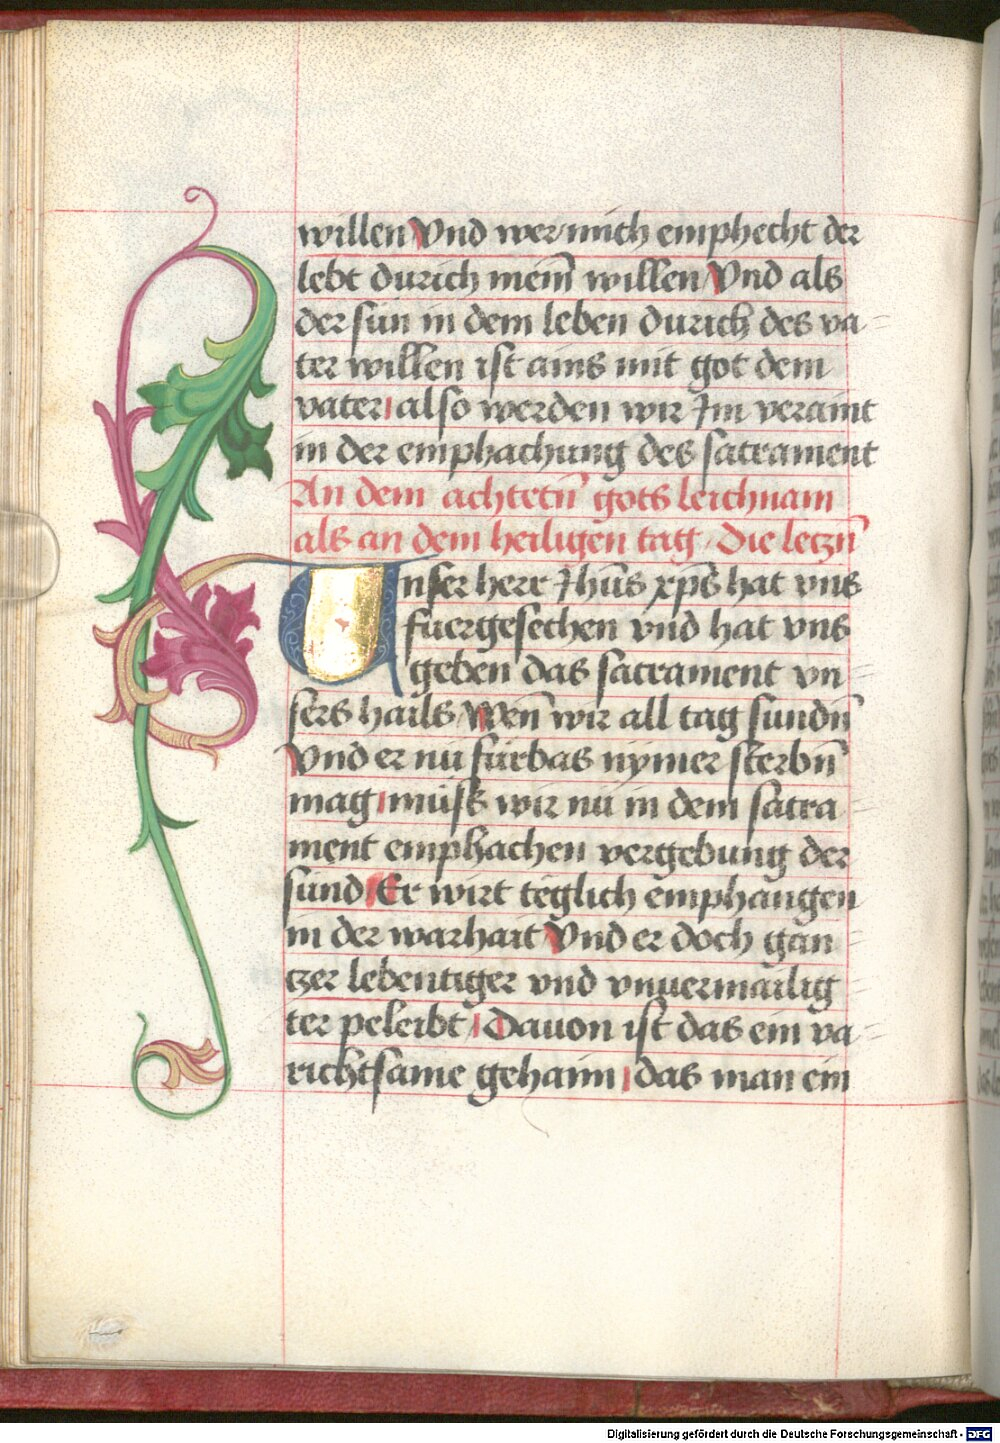 willen Vnd wer mich emphecht der
lebt durich mein̄ willen Vnd als
der sun in dem leben durich des va=
ter willen ist ains mit got dem
vater also werden wir Im veraint
in der emphachung des sacrament
An dem achtetn̄ gots leichnam
als an dem heiligen tag. Die leczn̄
Unser herr Jhūs xp̄s hat vns
fuergesechen vnd hat vns
geben das sacrament vn=
sers hails Wen̄ wir all tag sundn̄
Vnd er nu furbas nymer sterbn̄
mag muss wir nu in dem sacra=
ment emphachen vergebung der
sund Er wirt teglich emphangen
in der warhait Vnd er doch gan=
czer lebentiger vnd vnuermailig=
ter peleibt / Dauon ist das ein va=
richtsame gehaim das man ein
Digitalisierung gefördert durch die Deutsche Forschungsgemeinschaft - DFG